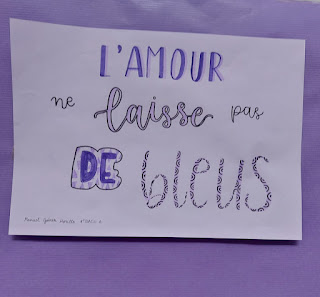 L'AMOUR
ne laisse pas
DE bleus